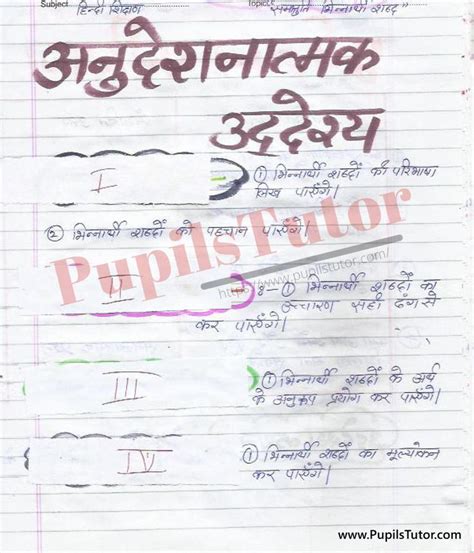 Subject हिन्दी शिक्षण Topic "समश्रुति भिन्नार्थी शब्द"
अनुदेशनात्मक
उद्देश्य
I ① भिन्नार्थी शब्दों की परिभाषा
लिख पाएँगे।
② भिन्नार्थी शब्दों को पहचान पाएँगे।
PupilsTutor
http://www.pupilstutor.com/
II ① भिन्नार्थी शब्दों का
उच्चारण सही ढंग से
कर पाएँगे।
III ① भिन्नार्थी शब्दों के अर्थ
के अनुरूप प्रयोग कर पाएँगे।
IV ① भिन्नार्थी शब्दों का मूल्यांकन
कर पाएँगे।
www.PupilsTutor.com